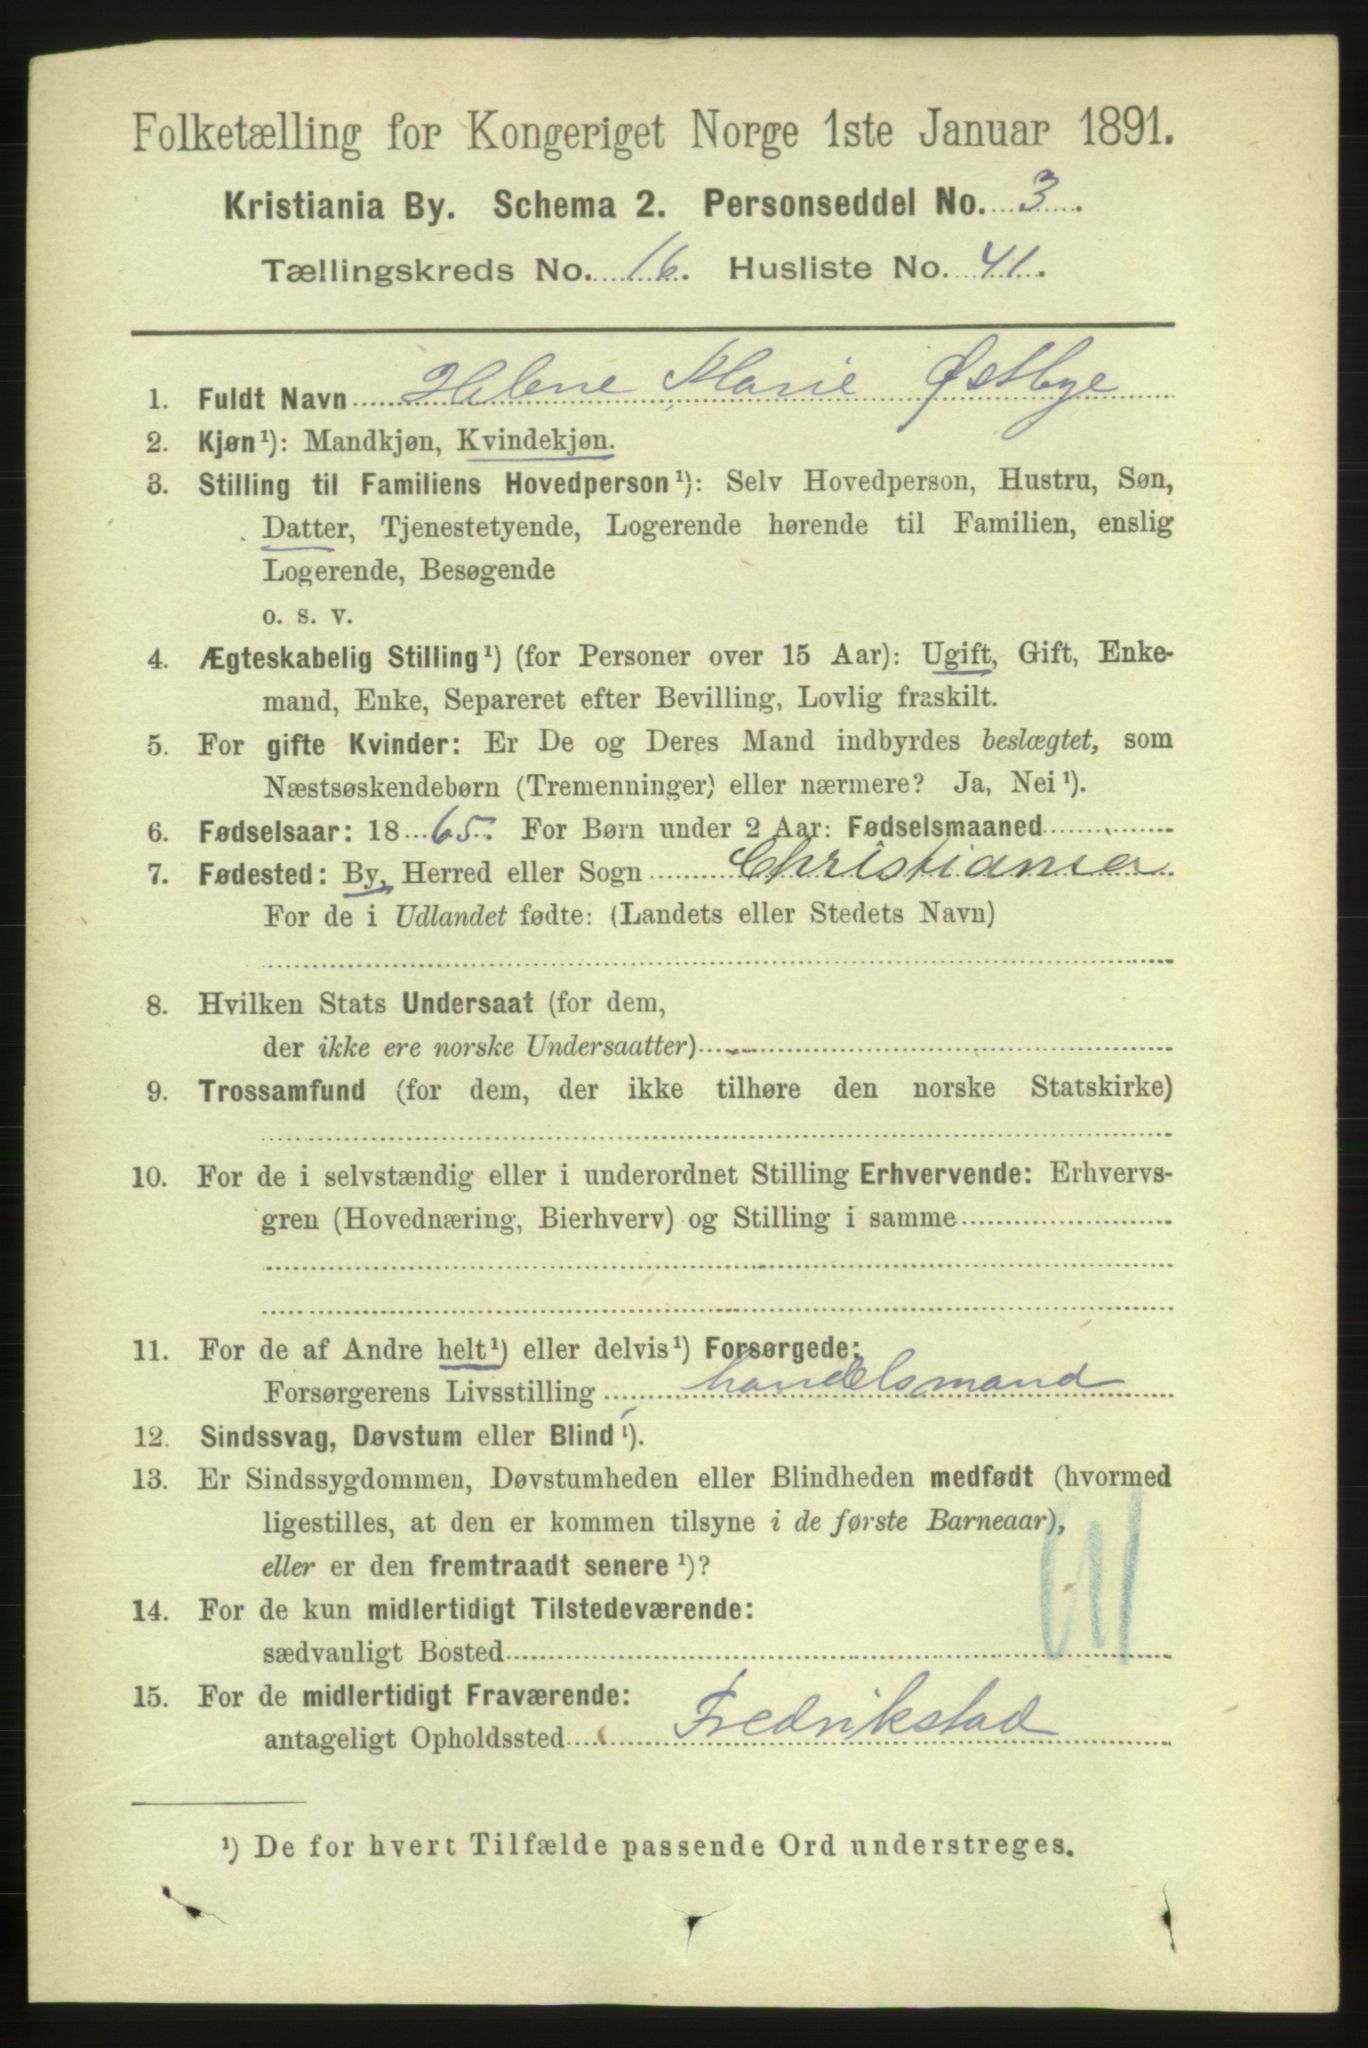 Folketælling for Kongeriget Norge 1ste Januar 1891.
Kristiania By. Schema 2. Personseddel No. 3.
Tællingskreds No. 16. Husliste No. 41.
1. Fuldt Navn Helene Marie Østbye
2. Kjøn¹): Mandkjøn, Kvindekjøn.
3. Stilling til Familiens Hovedperson¹): Selv Hovedperson, Hustru, Søn,
Datter, Tjenestetyende, Logerende hørende til Familien, enslig
Logerende, Besøgende
o. s. v.
4. Ægteskabelig Stilling¹) (for Personer over 15 Aar): Ugift, Gift, Enke-
mand, Enke, Separeret efter Bevilling, Lovlig fraskilt.
5. For gifte Kvinder: Er De og Deres Mand indbyrdes beslægtet, som
Næstsøskendebørn (Tremenninger) eller nærmere? Ja, Nei¹).
6. Fødselsaar: 1865. For Børn under 2 Aar: Fødselsmaaned
7. Fødested: By, Herred eller Sogn Christiania
For de i Udlandet fødte: (Landets eller Stedets Navn)
8. Hvilken Stats Undersaat (for dem,
der ikke ere norske Undersaatter)
9. Trossamfund (for dem, der ikke tilhøre den norske Statskirke)
10. For de i selvstændig eller i underordnet Stilling Erhvervende: Erhvervs-
gren (Hovednæring, Bierhverv) og Stilling i samme
11. For de af Andre helt¹) eller delvis¹) Forsørgede:
Forsørgerens Livsstilling handelsmand
12. Sindssvag, Døvstum eller Blind¹).
13. Er Sindssygdommen, Døvstumheden eller Blindheden medfødt (hvormed
ligestilles, at den er kommen tilsyne i de første Barneaar),
eller er den fremtraadt senere¹)?
14. For de kun midlertidigt Tilstedeværende:
sædvanligt Bosted
15. For de midlertidigt Fraværende:
antageligt Opholdssted Fredrikstad
¹) De for hvert Tilfælde passende Ord understreges.